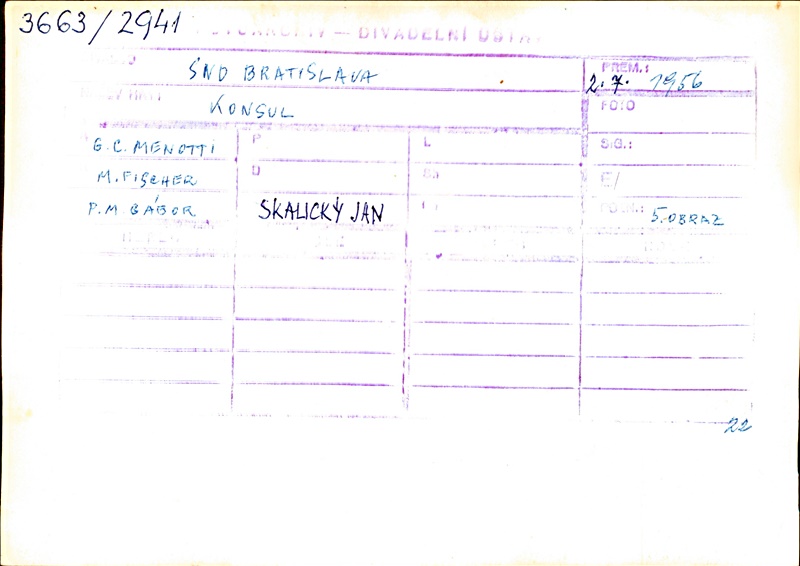 3663/2941
DIVADELNÍ ÚSTAV
SND BRATISLAVA
PREM.:
2.7. 1956
KONSUL
FOTO
G. C. MENOTTI
P
L
SIG.:
M. FISCHER
D
E/
P. M. GÁBOR
SKALICKÝ JAN
5. OBRAZ
22